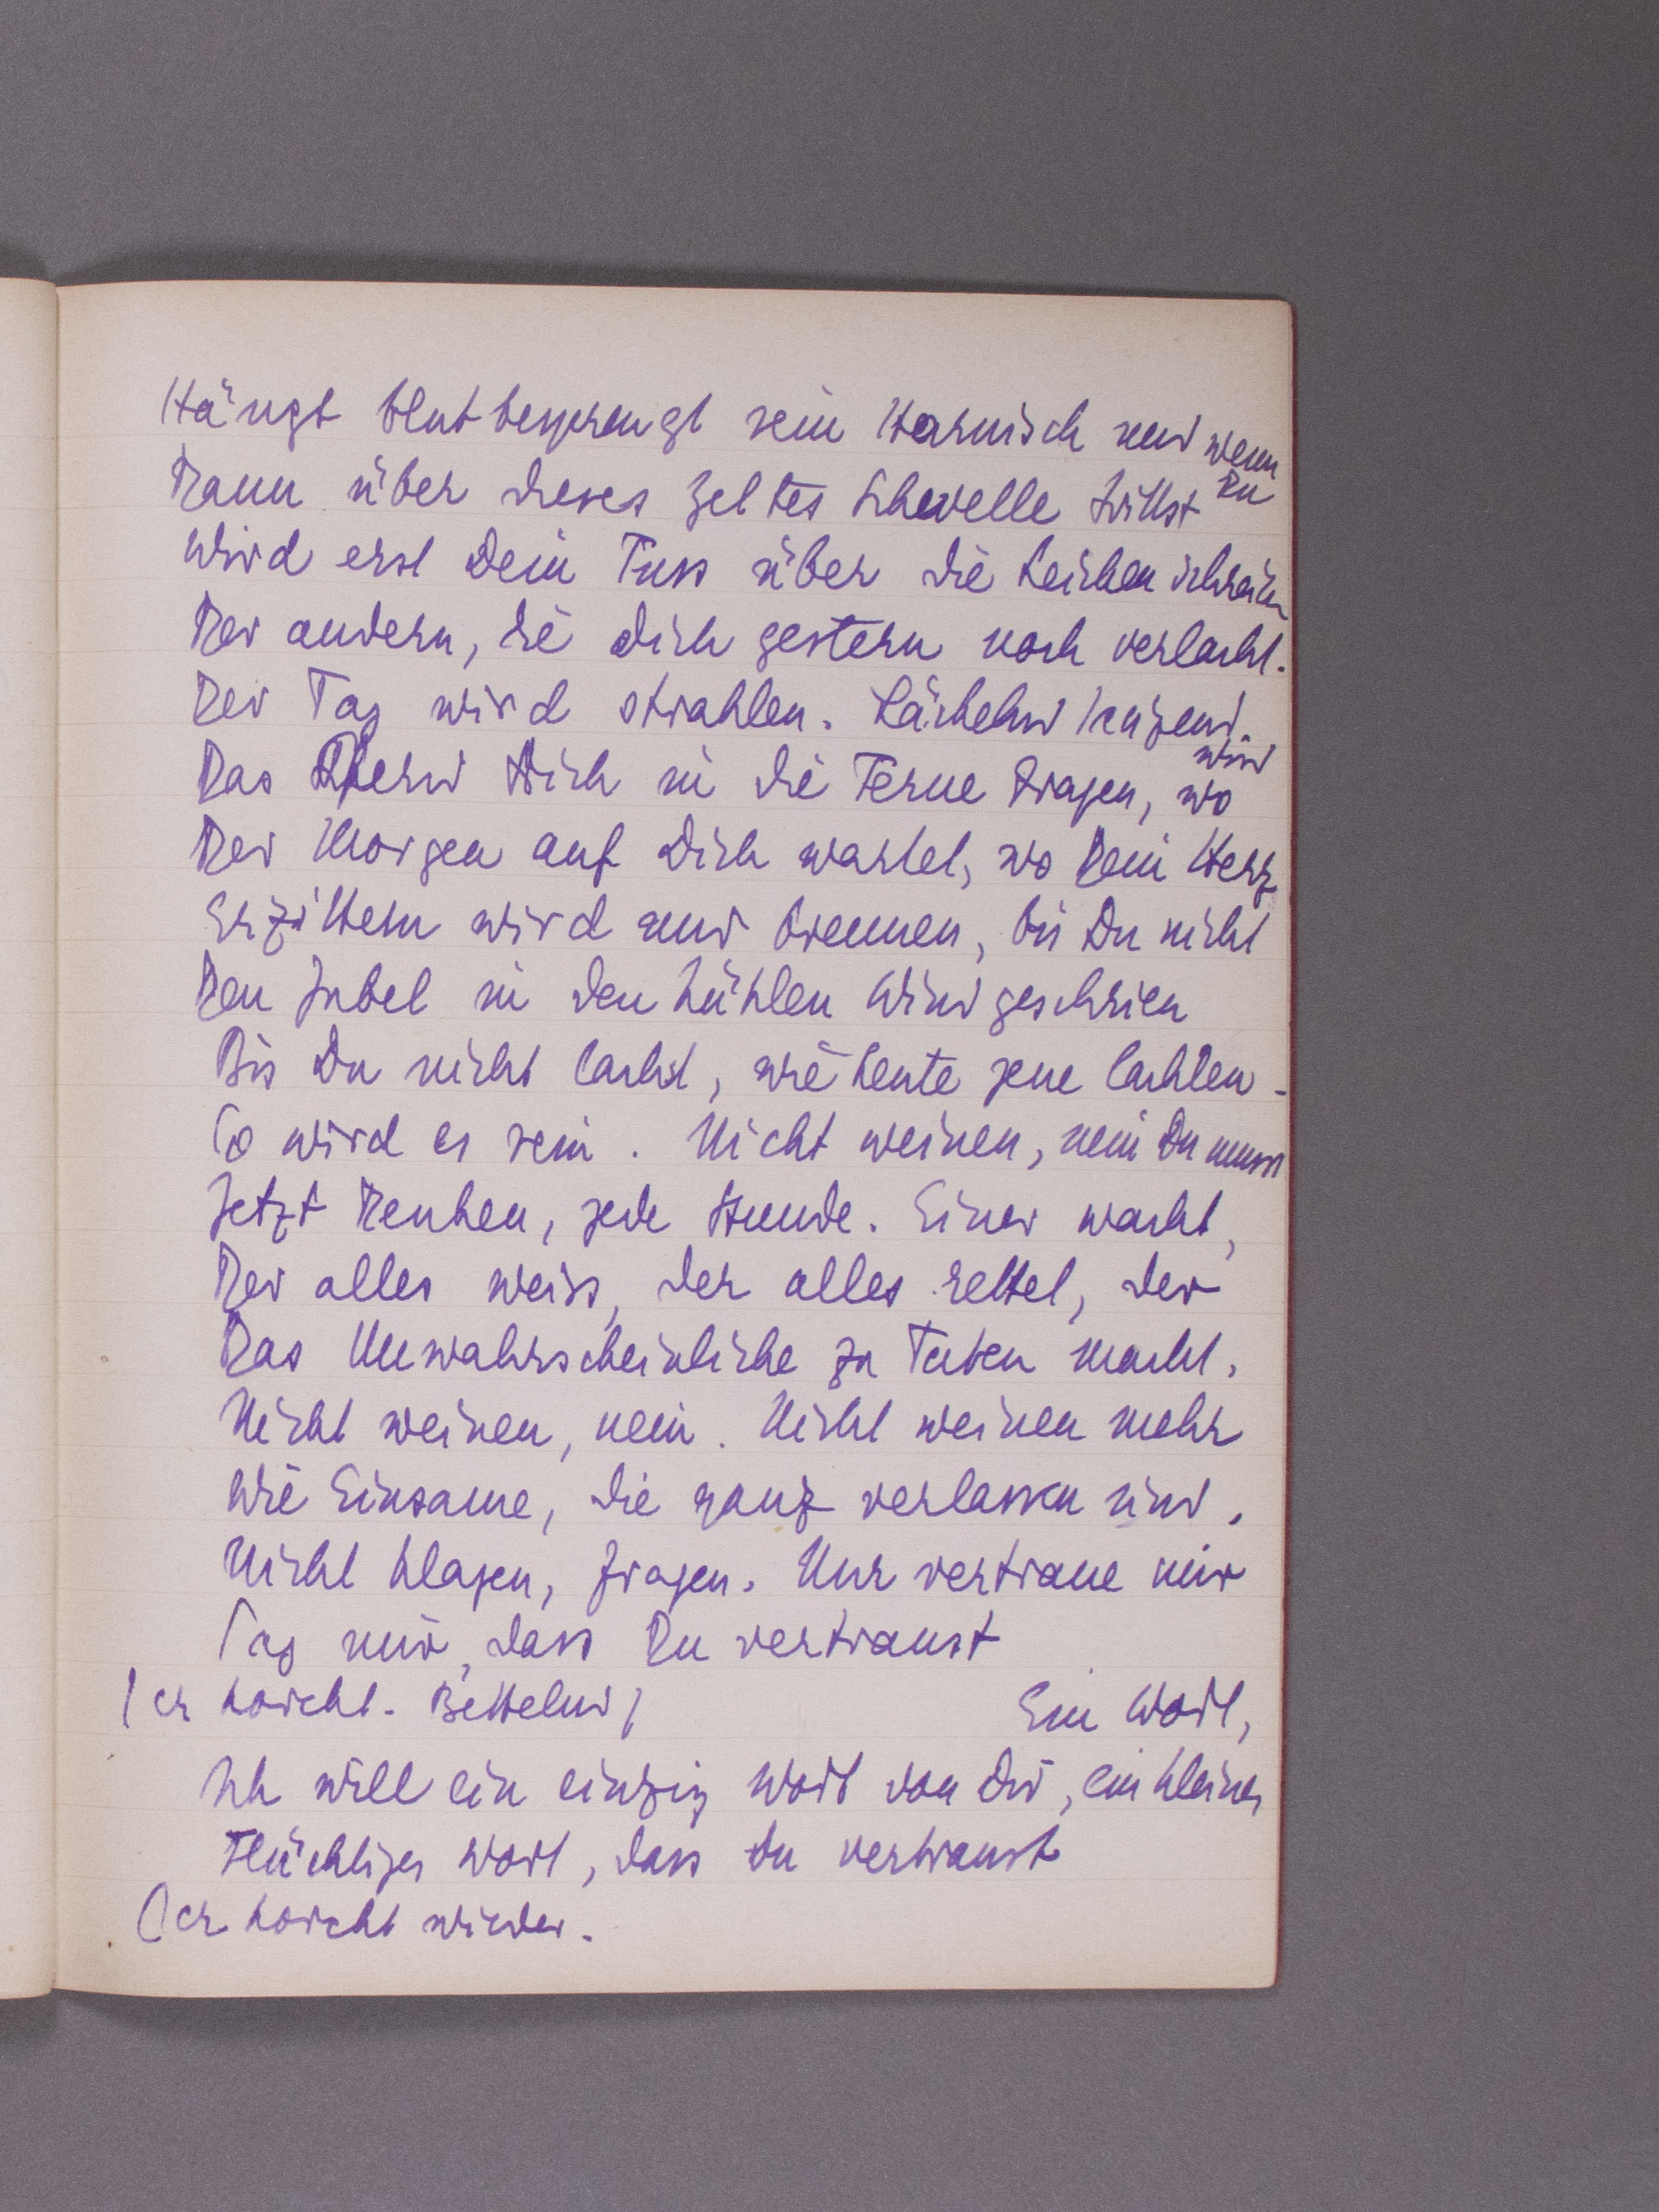 Hängt blutbesprengt sein Harnisch und wenn Du
Dann über dieses Zeltes Schwelle trittst
Wird erst Dein Fuss über die Leichen schreiten
Der andern, die dich gestern noch verlacht.
Der Tag wird strahlen. Lächelnd
Das Pferd Dich in die Ferne tragen, wo
wird
Der Morgen auf Dich wartet, wo Dein Herz
Erzittern wird und brennen, bis Du nicht
Den Jubel in den kühlen Wind geschrien
Bis Du nicht lachst, wie heute jene lachten -
So wird es sein. Nicht weinen, nein Du musst
Jetzt Denken, jede Stunde. Einer wacht,
Der alles weiss, der alles rettet, der
Das Unwahrscheinliche zu Taten macht.
Nicht weinen, nein. Nicht weinen mehr
Wie Einsame, die ganz verlassen sind.
Nicht klagen, fragen. Nur vertraue mir
Sag mir, dass Du vertraust
(er horcht. Bettelnd) Ein Wort,
Ich will ein einzig Wort von Dir, ein kleines
Flüchtiges Wort, dass du vertraust
(er horcht wieder.